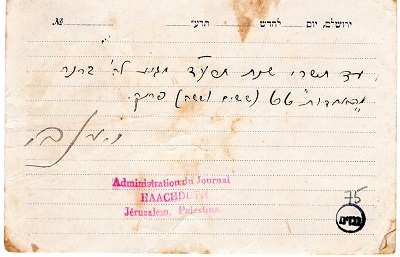 №
ירושלם, יום לחדש תרע״
עד תשרי שנת תרע״ד מגיע לה׳ ברנר
מ״האחדות״ 66 (ששים וששה) פרנק.
Administration du Journal
HAACHDOUTH
Jérusalem, Palestine.
75